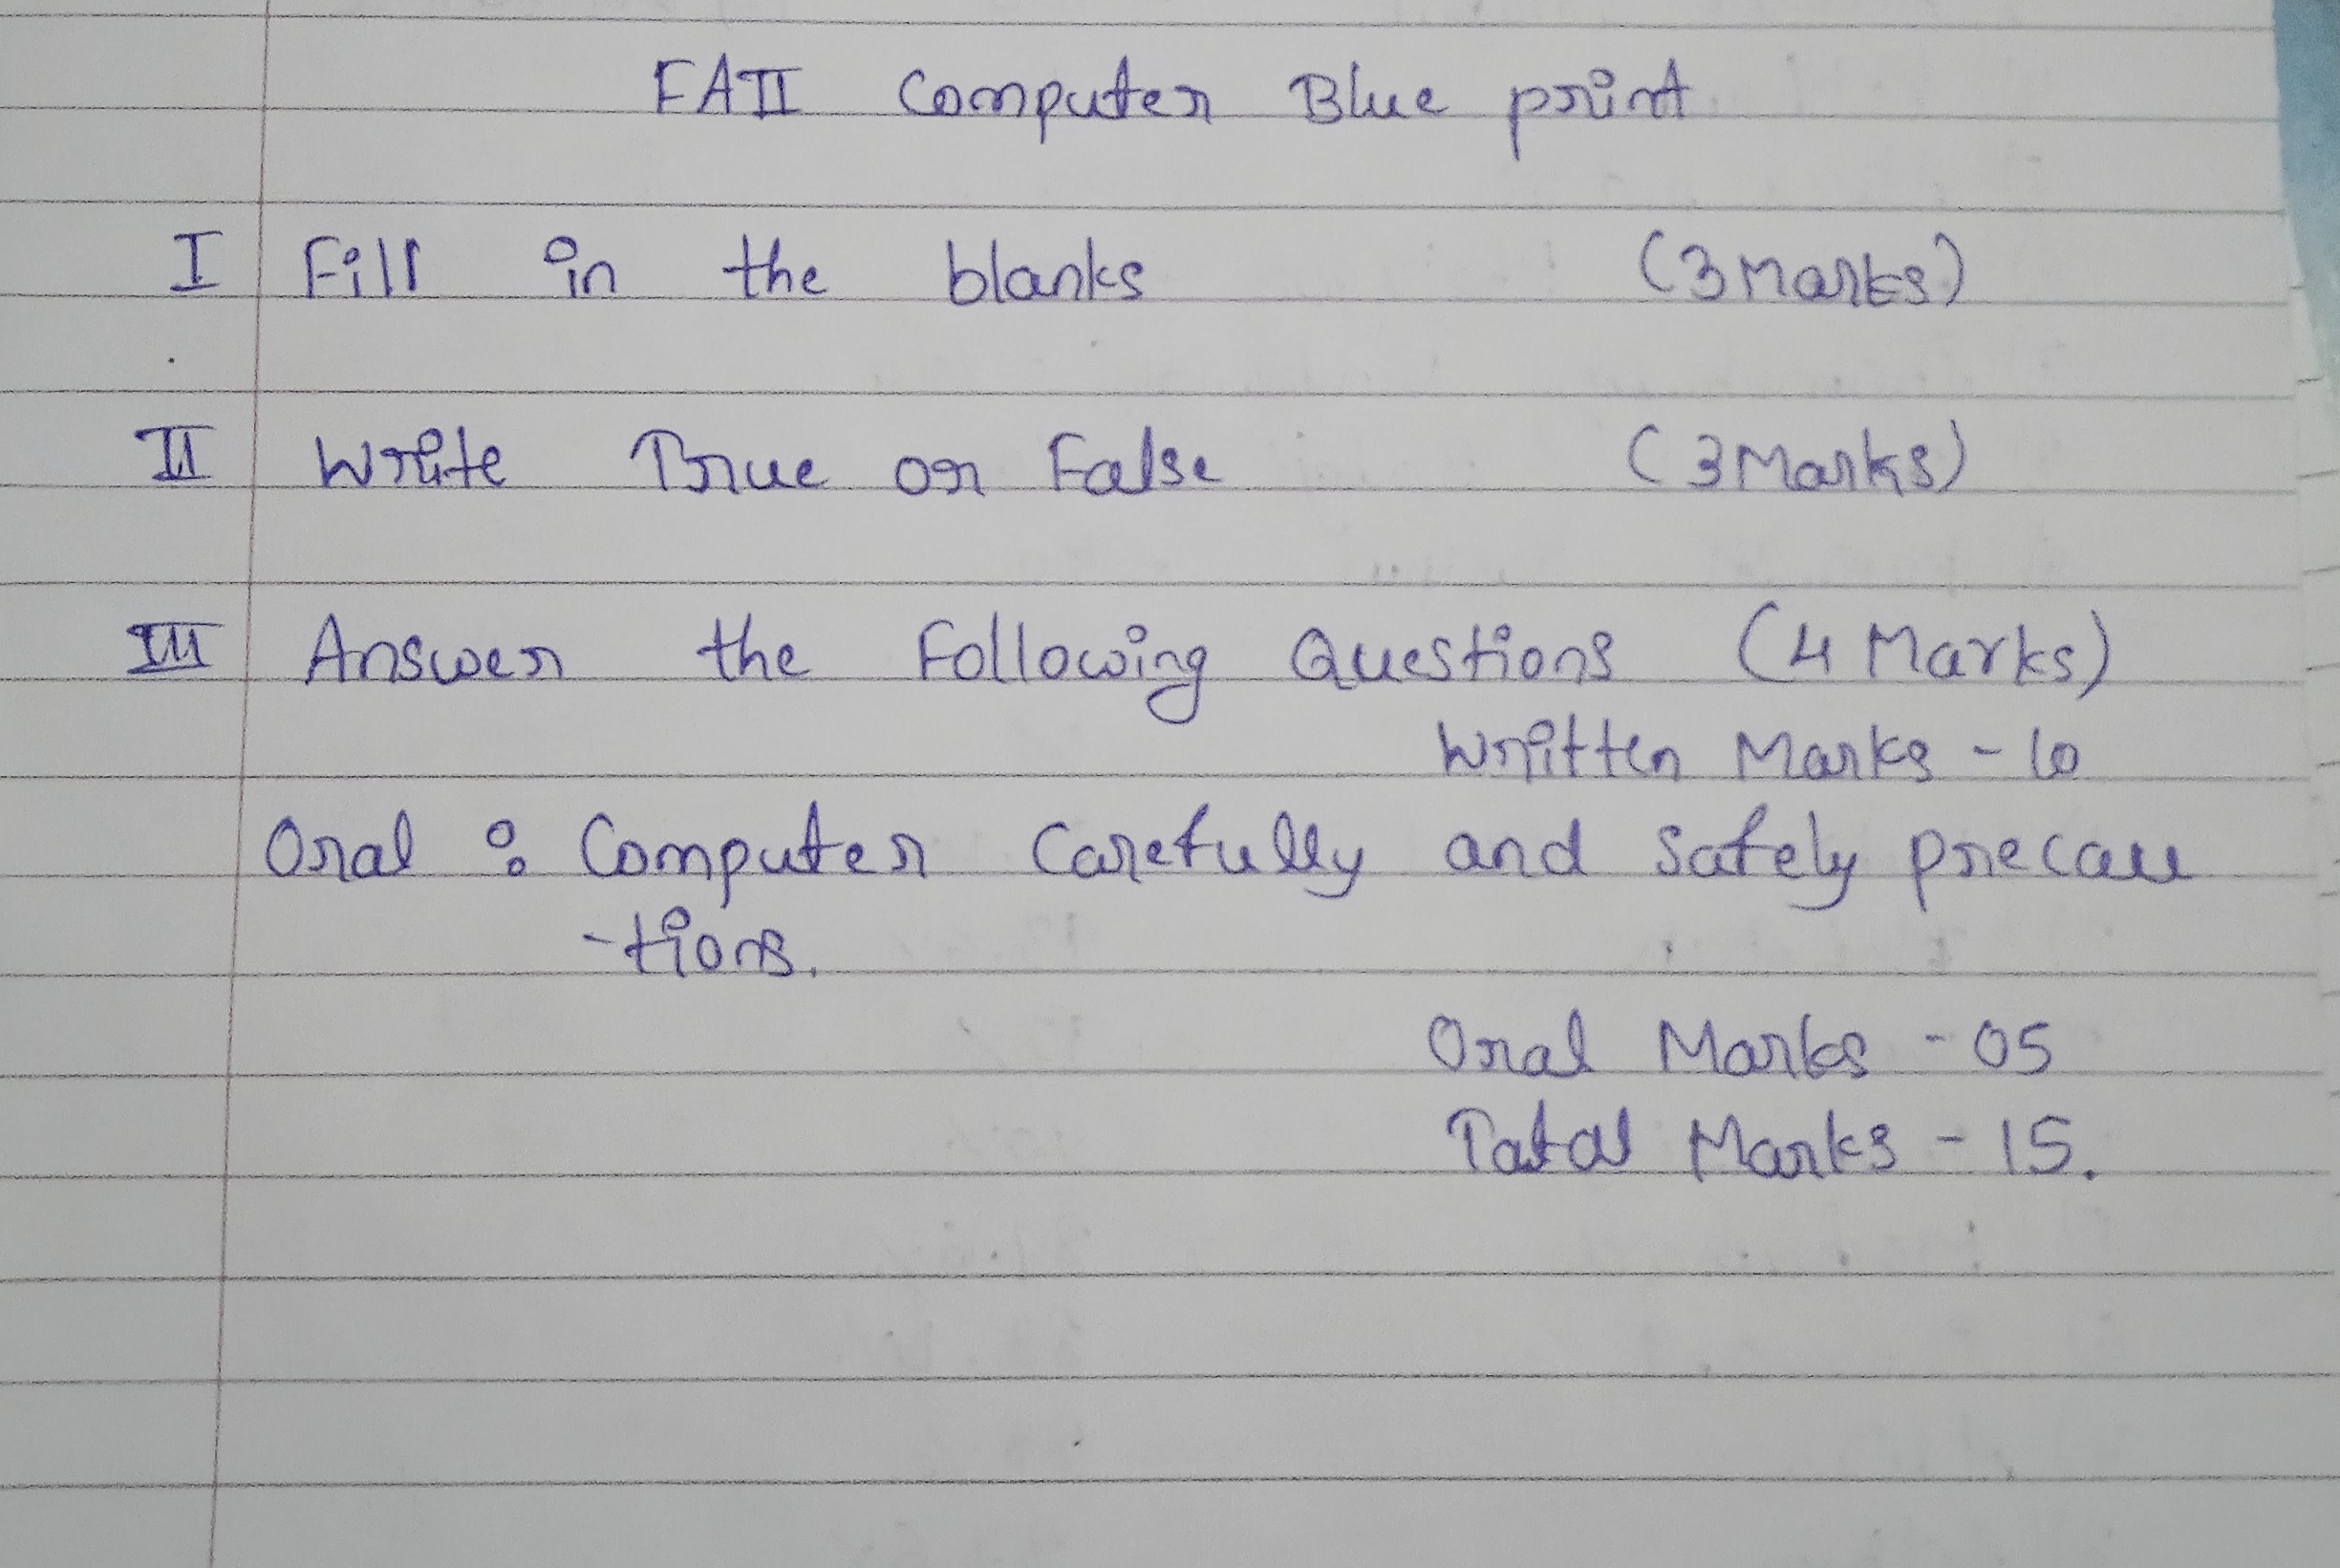 FAII Computer Blue print
I Fill in the blanks (3 Marks)
II Write True or False (3 Marks)
III Answer the Following Questions (4 Marks)
Written Marks - 10
Oral : Computer Carefully and Safely precau
-tions.
Oral Marks - 05
Total Marks - 15.